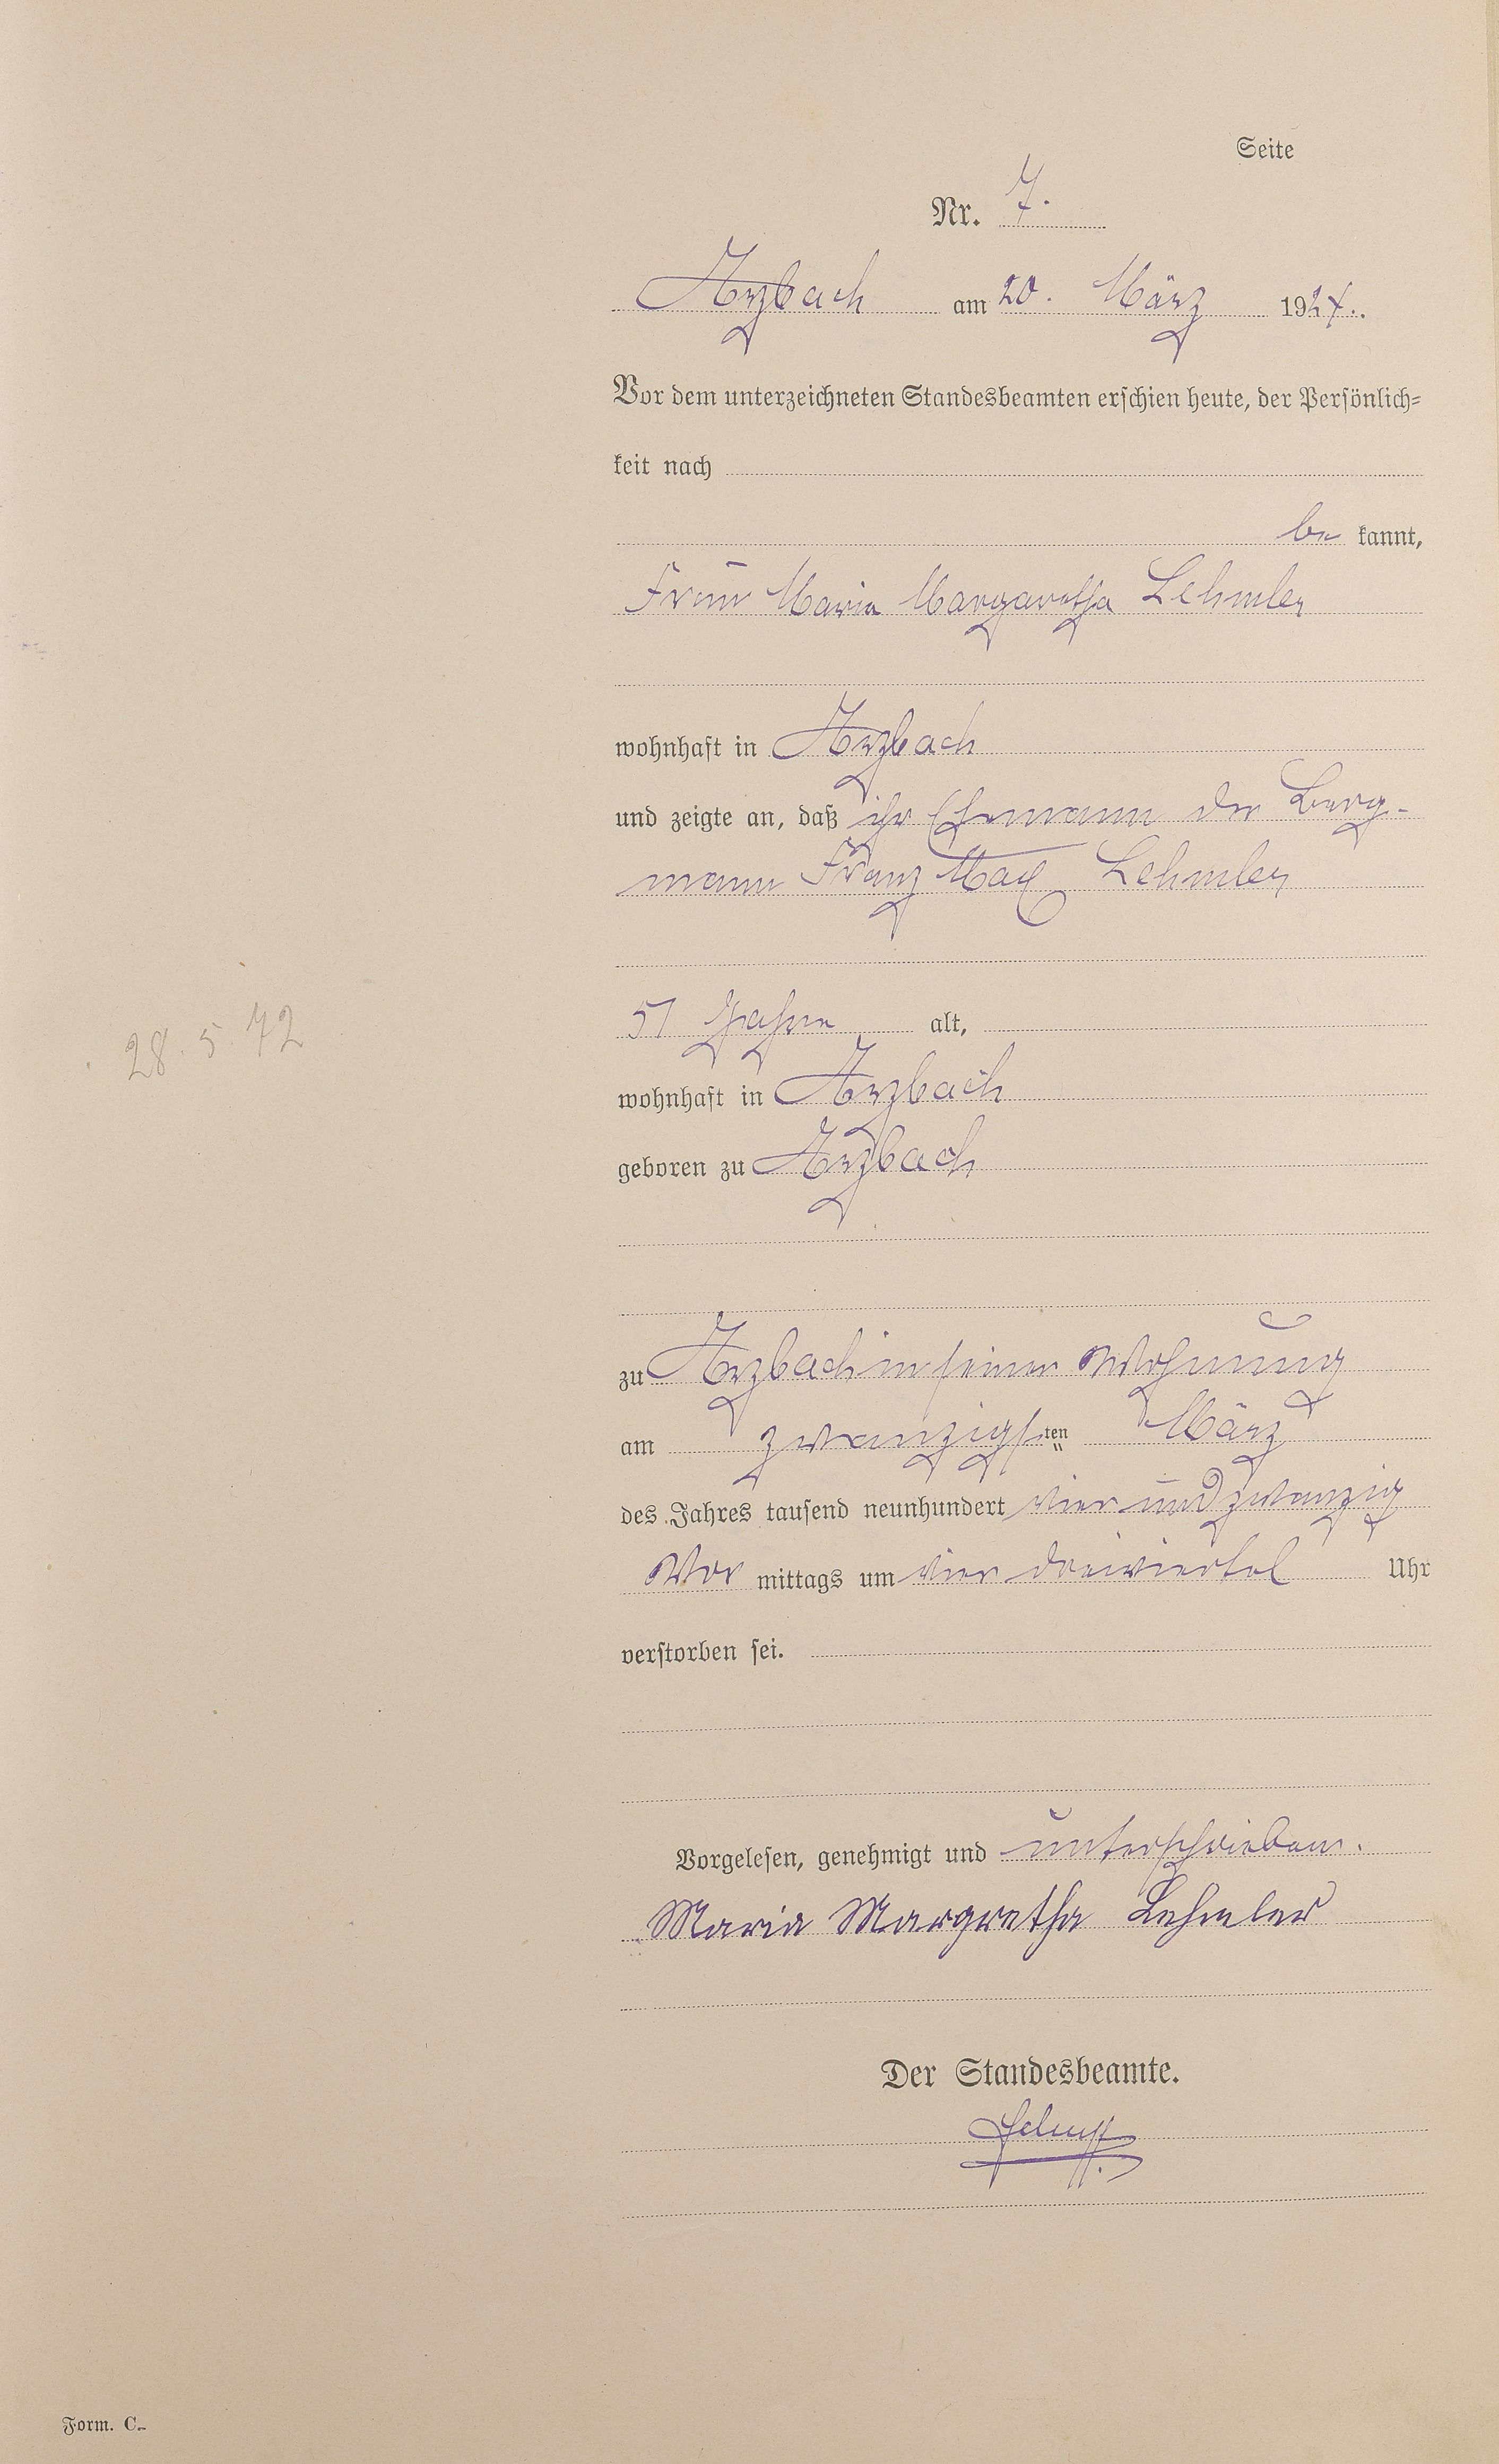 Seite
Nr. 7.
Arzbach am 20. März 1924.
Vor dem unterzeichneten Standesbeamten erschien heute, der Persönlich-
keit nach
be kannt,
Frau Maria Margaretha Lehmler
wohnhaft in Arzbach
und zeigte an, daß ihr Ehemann der Berg-
mann Franz Max Lehmler
51 Jahre alt,
28. 5 72
wohnhaft in Arzbach
geboren zu Arzbach
zu Arzbach in seiner Wohnung
am zwanzigsten März
des Jahres tausend neunhundert vier und zwanzig
Vor mittags um vier dreiviertel Uhr
verstorben sei.
Vorgelesen, genehmigt und unterschrieben.
Maria Margretha Lehmler
Der Standesbeamte.
Form. C.